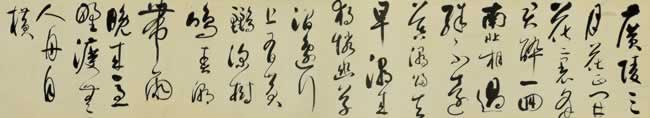 廣陵三
月花正開
花裏逢
君醉一迴
南北相過
殊不遠
暮潮歸去
早潮來
獨憐幽草
澗邊行
上有黃
鸝深樹
鳴春潮
帶雨
晚來急
野渡無
人舟自
橫